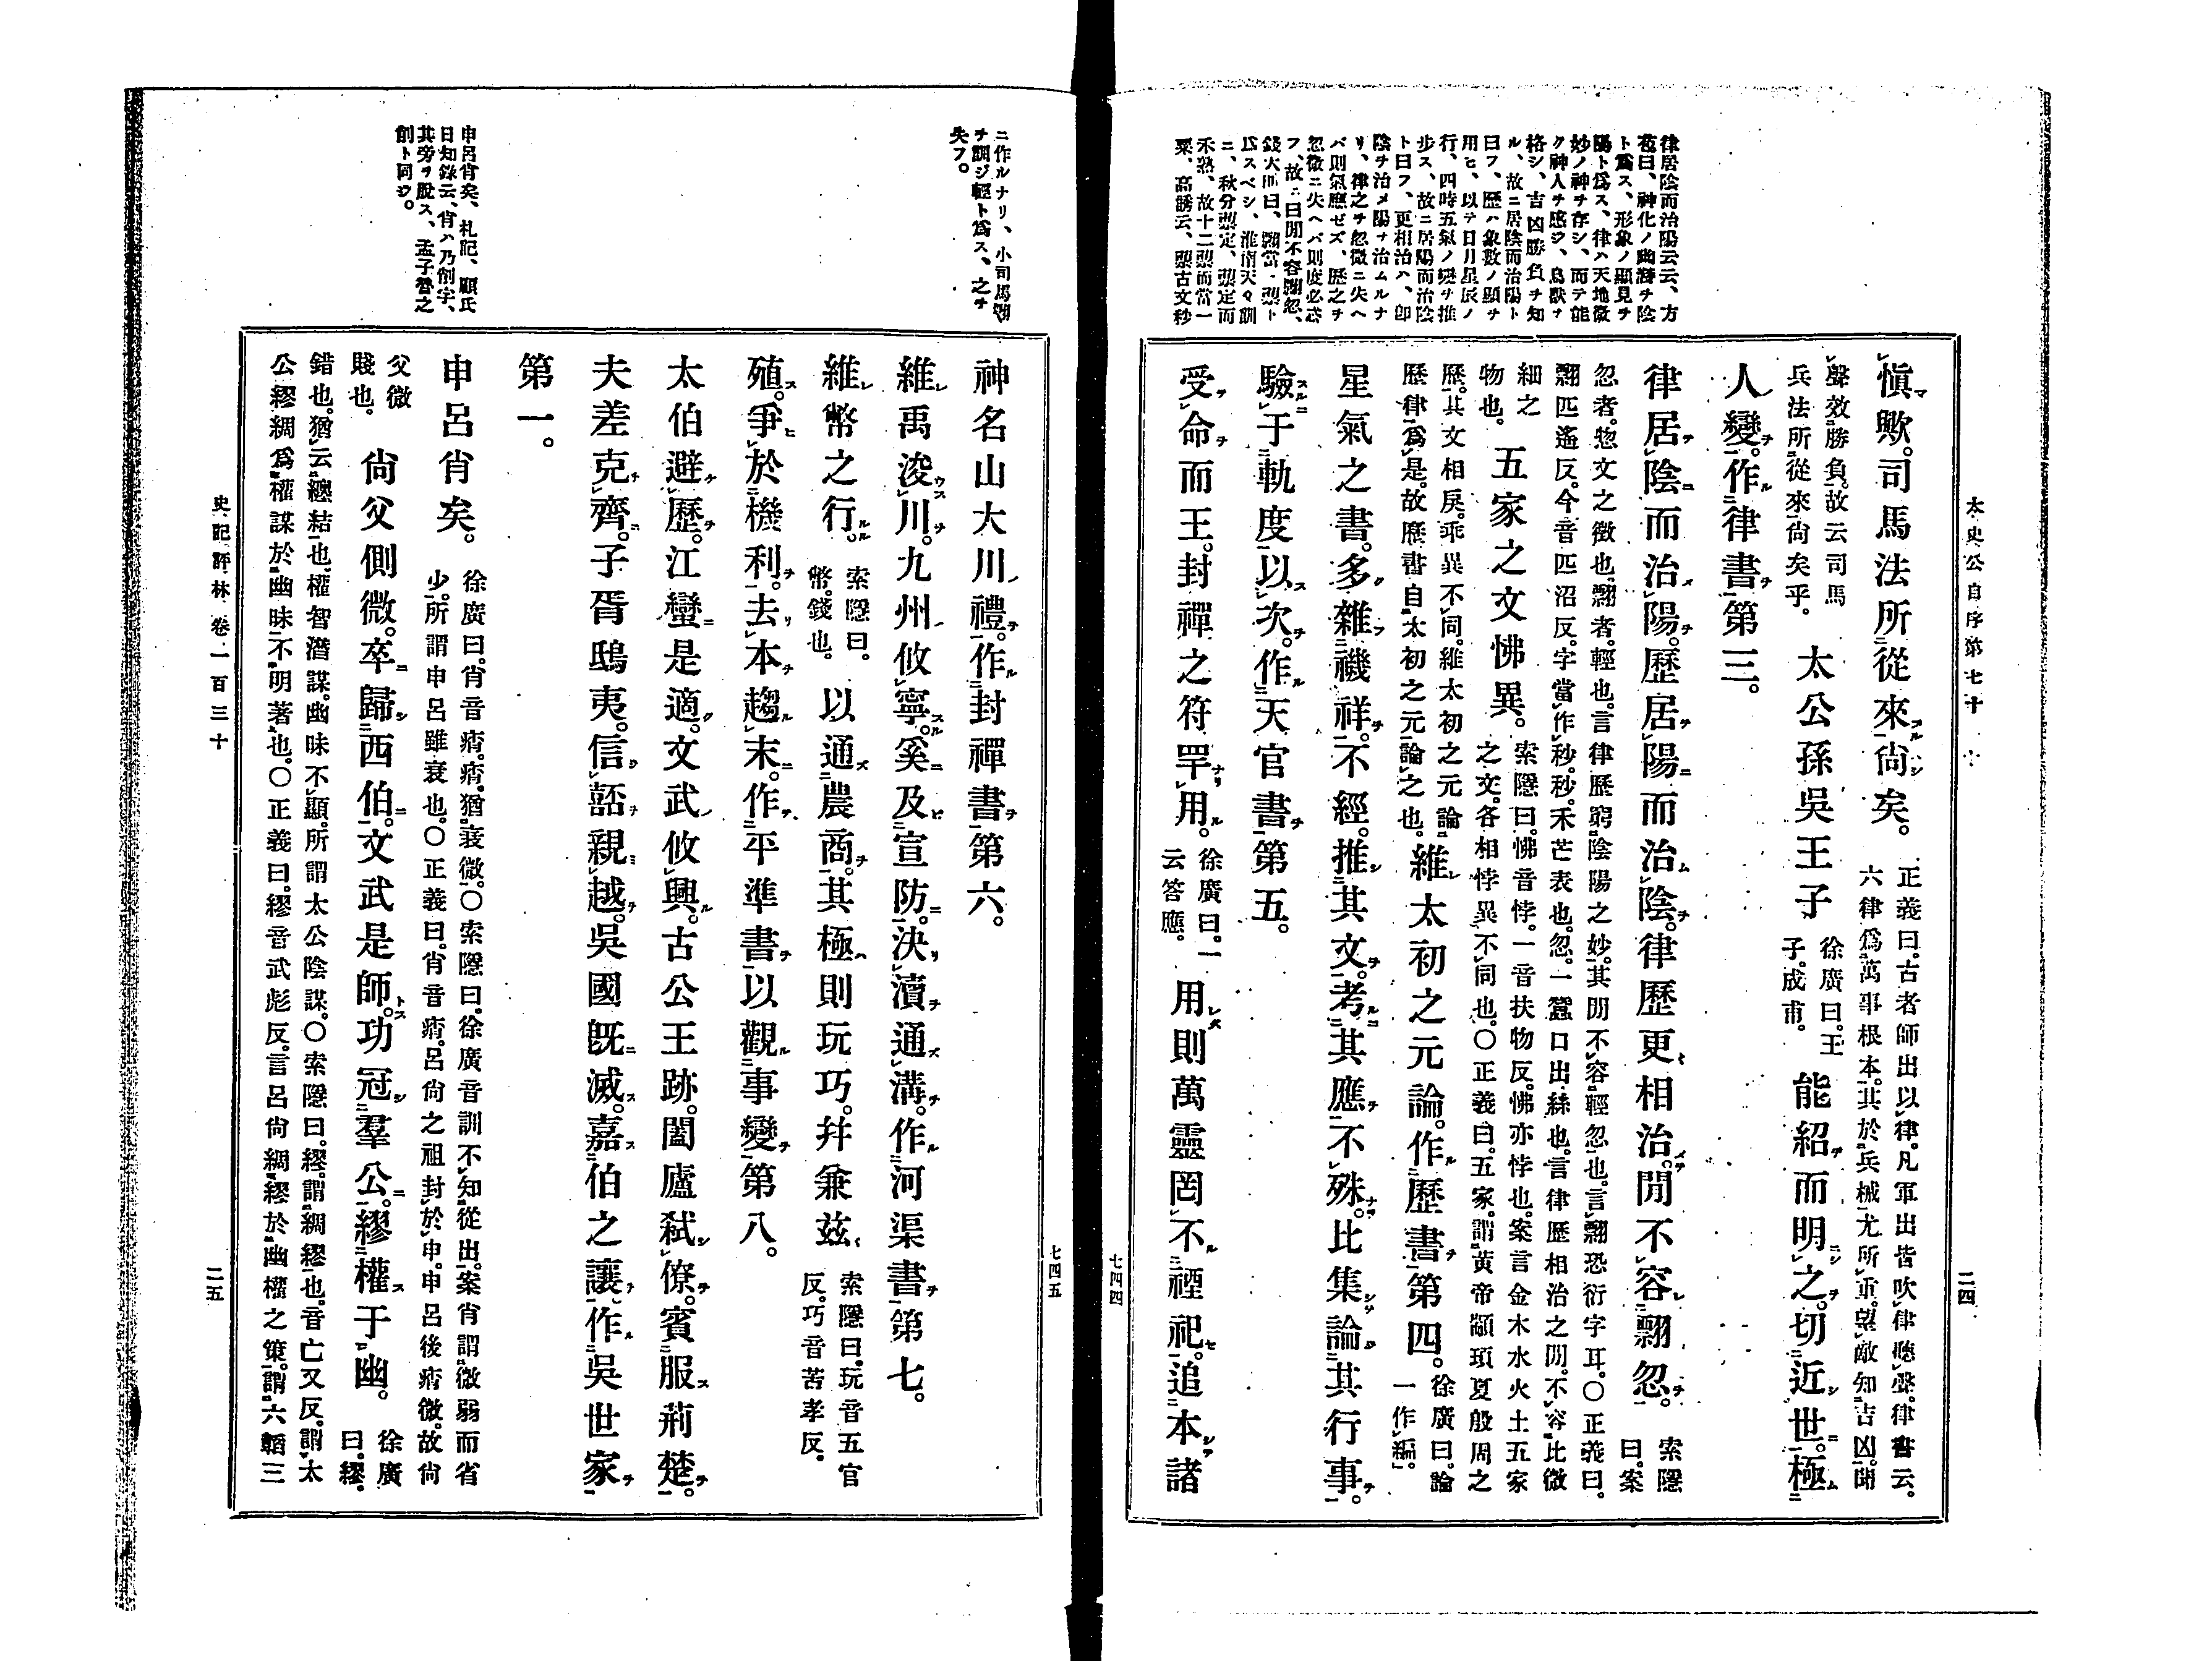 太史公自序第七十
二四
七四四
律居陰而治陽云云、方
苞曰、神化ノ幽潛チ陰
ト爲ス、形象ノ顯見チ
陽ト爲ス、律ハ天地微
妙ノ神チ存シ、而テ能
ク神人チ感ジ、鳥獸チ
格シ、吉凶勝負チ知
ル、故ニ居陰而治陽ト
曰フ、歷ハ象數ノ顯チ
用ヒ、以テ日月星辰ノ
行、四時五氣ノ變チ推
步ス、故ニ居陽而治陰
ト曰フ、更相治ハ、卽
陰チ治メ陽チ治ムルナ
リ、律之チ忽微ニ失ヘ
バ則氣應ゼズ、歷之チ
忽微ニ失ヘバ則度必忒
フ、故ニ曰閒不容翲忽、
錢大昕曰、翲當ニ蔈ト
爲スベシ、淮南天文訓
ニ、秋分蔈定、蔈定而
禾熟、故十二蔈而當一
粟、高誘云、蔈古文秒
愼歟。司馬法所從來尙矣。
正義曰。古者師出以律。凡軍出皆吹律聽聲。律書云。
六律爲萬事根本。其於兵械尤所重。望敵知吉凶。聞
聲效勝負。故云司馬
兵法所從來尙矣乎。
太公孫吳王子
徐廣曰。王
子。成甫。
能紹而明之。切近世。極
人變。作律書第三。
律居陰而治陽。歷居陽而治陰。律歷更相治。閒不容翲忽。
索隱
曰。案
忽者。惣文之微也。翲者。輕也。言律歷窮陰陽之妙。其閒不容輕忽也。言翲恐衍字耳。○正義曰。
翲匹遙反。今音匹沼反。字當作秒。秒。禾芒表也。忽。一蠶口出絲也。言律歷相治之閒。不容比微
細之
物也。
五家之文怫異。
索隱曰。怫音悖。一音扶物反。怫亦悖也。案言金木水火土五家
之文。各相悖異不同也。○正義曰。五家。謂黃帝顓頊夏殷周之
歷。其文相戾。乖異不同。維太初之元論
歷律爲是。故歷書自太初之元論之也。
維太初之元論。作歷書第四。
徐廣曰。論
一作編。
星氣之書。多雜禨祥。不經。推其文。考其應不殊。比集論其行事。
驗于軌度以次。作天官書第五。
受命而王。封禪之符罕用。
徐廣曰。一
云答應。
用則萬靈罔不禋祀。追本諸
七四五
ニ作ルナリ、小司馬翲
チ訓ジ輕ト爲ス、之チ
失フ。
申呂肖矣、札記、顧氏
日知錄云、肖ハ乃削字、
其旁チ脫ス、孟子魯之
削ト同ジ。
神名山大川禮。作封禪書第六。
維禹浚川。九州攸寧。奚及宣防。決瀆通溝。作河渠書第七。
維幣之行。
索隱曰。
幣。錢也。
以通農商。其極則玩巧。幷兼玆
索隱曰。玩音五官
反。巧音苦孝反。
殖。爭於機利。去本趨末。作平準書以觀事變第八。
太伯避歷。江蠻是適。文武攸興。古公王跡。闔廬弑僚。賓服荊楚。
夫差克齊。子胥鴟夷。信嚭親越。吳國旣滅。嘉伯之讓。作吳世家
第一。
申呂肖矣。
徐廣曰。肖音痟。痟猶衰微。○索隱曰。徐廣音訓不知從出。案肖謂微弱而省
少。所謂申呂雖衰也。○正義曰。肖音痟。呂尙之祖封於申。申呂後痟微。故尙
父微
賤也。
尙父側微。卒歸西伯。文武是師。功冠羣公。繆權于幽。
徐廣
曰。繆。
錯也。猶云纏結也。權智潛謀。幽昧不顯。所謂太公陰謀。○索隱曰。繆。謂綢繆也。音亡又反。謂太
公繆綢爲權謀於幽昧不明著也。○正義曰。繆音武彪反。言呂尙綢繆於幽權之策。謂六韜三
史記評林卷一百三十
二五